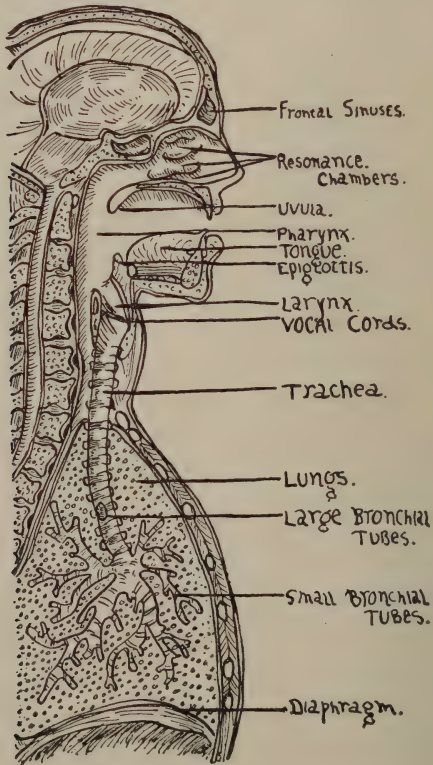 Frontal Sinuses.
Resonance.
Chambers.
Uvula.
Pharynx.
Tongue.
Epiglottis.
Larynx.
Vocal Cords.
Trachea.
Lungs.
Large Bronchial
Tubes.
Small Bronchial
Tubes.
Diaphragm.